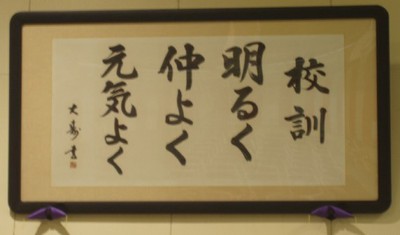 校訓
明るく
仲よく
元気よく